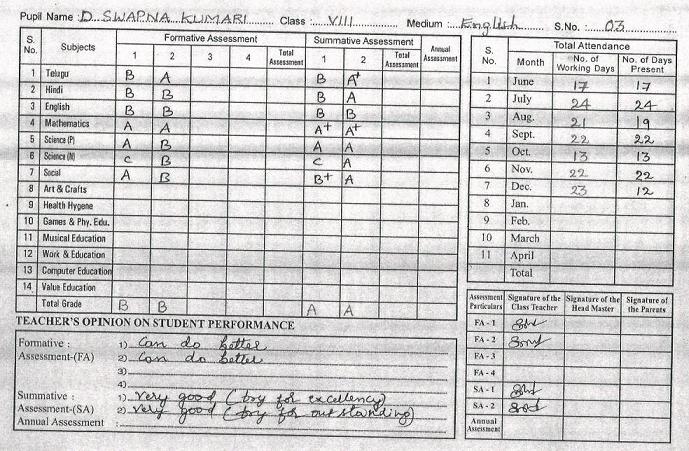 Pupil Name :D. SWAPNA KUMARI Class : VIII Medium : English S.No. : 03
S. No. Subjects Formative Assessment Summative Assessment Annual Assessment
1 2 3 4 Total Assessment 1 2 Total Assessment
1 Telugu B A B A+
2 Hindi B B B A
3 English B B B B
4 Mathematics A A A+ A+
5 Science (P) A B A A
6 Science (N) C B C A
7 Social A B B+ A
8 Art & Crafts
9 Health Hygene
10 Games & Phy. Edu.
11 Musical Education
12 Work & Education
13 Computer Education
14 Value Education
Total Grade B B A A
S. No. Total Attendance
Month No. of Working Days No. of Days Present
1 June 17 17
2 July 24 24
3 Aug. 21 19
4 Sept. 22 22
5 Oct. 13 13
6 Nov. 22 22
7 Dec. 23 12
8 Jan.
9 Feb.
10 March
11 April
Total
TEACHER'S OPINION ON STUDENT PERFORMANCE
Formative : 1) Can do better
Assessment-(FA) 2) Can do better
3)
4)
Summative : 1) Very good (try for excellency)
Assessment-(SA) 2) Very good (try for outstanding)
Annual Assessment :
Assessment Particulars Signature of the Class Teacher Signature of the Head Master Signature of the Parents
FA - 1
FA - 2
FA - 3
FA - 4
SA - 1
SA - 2
Annual Assessment